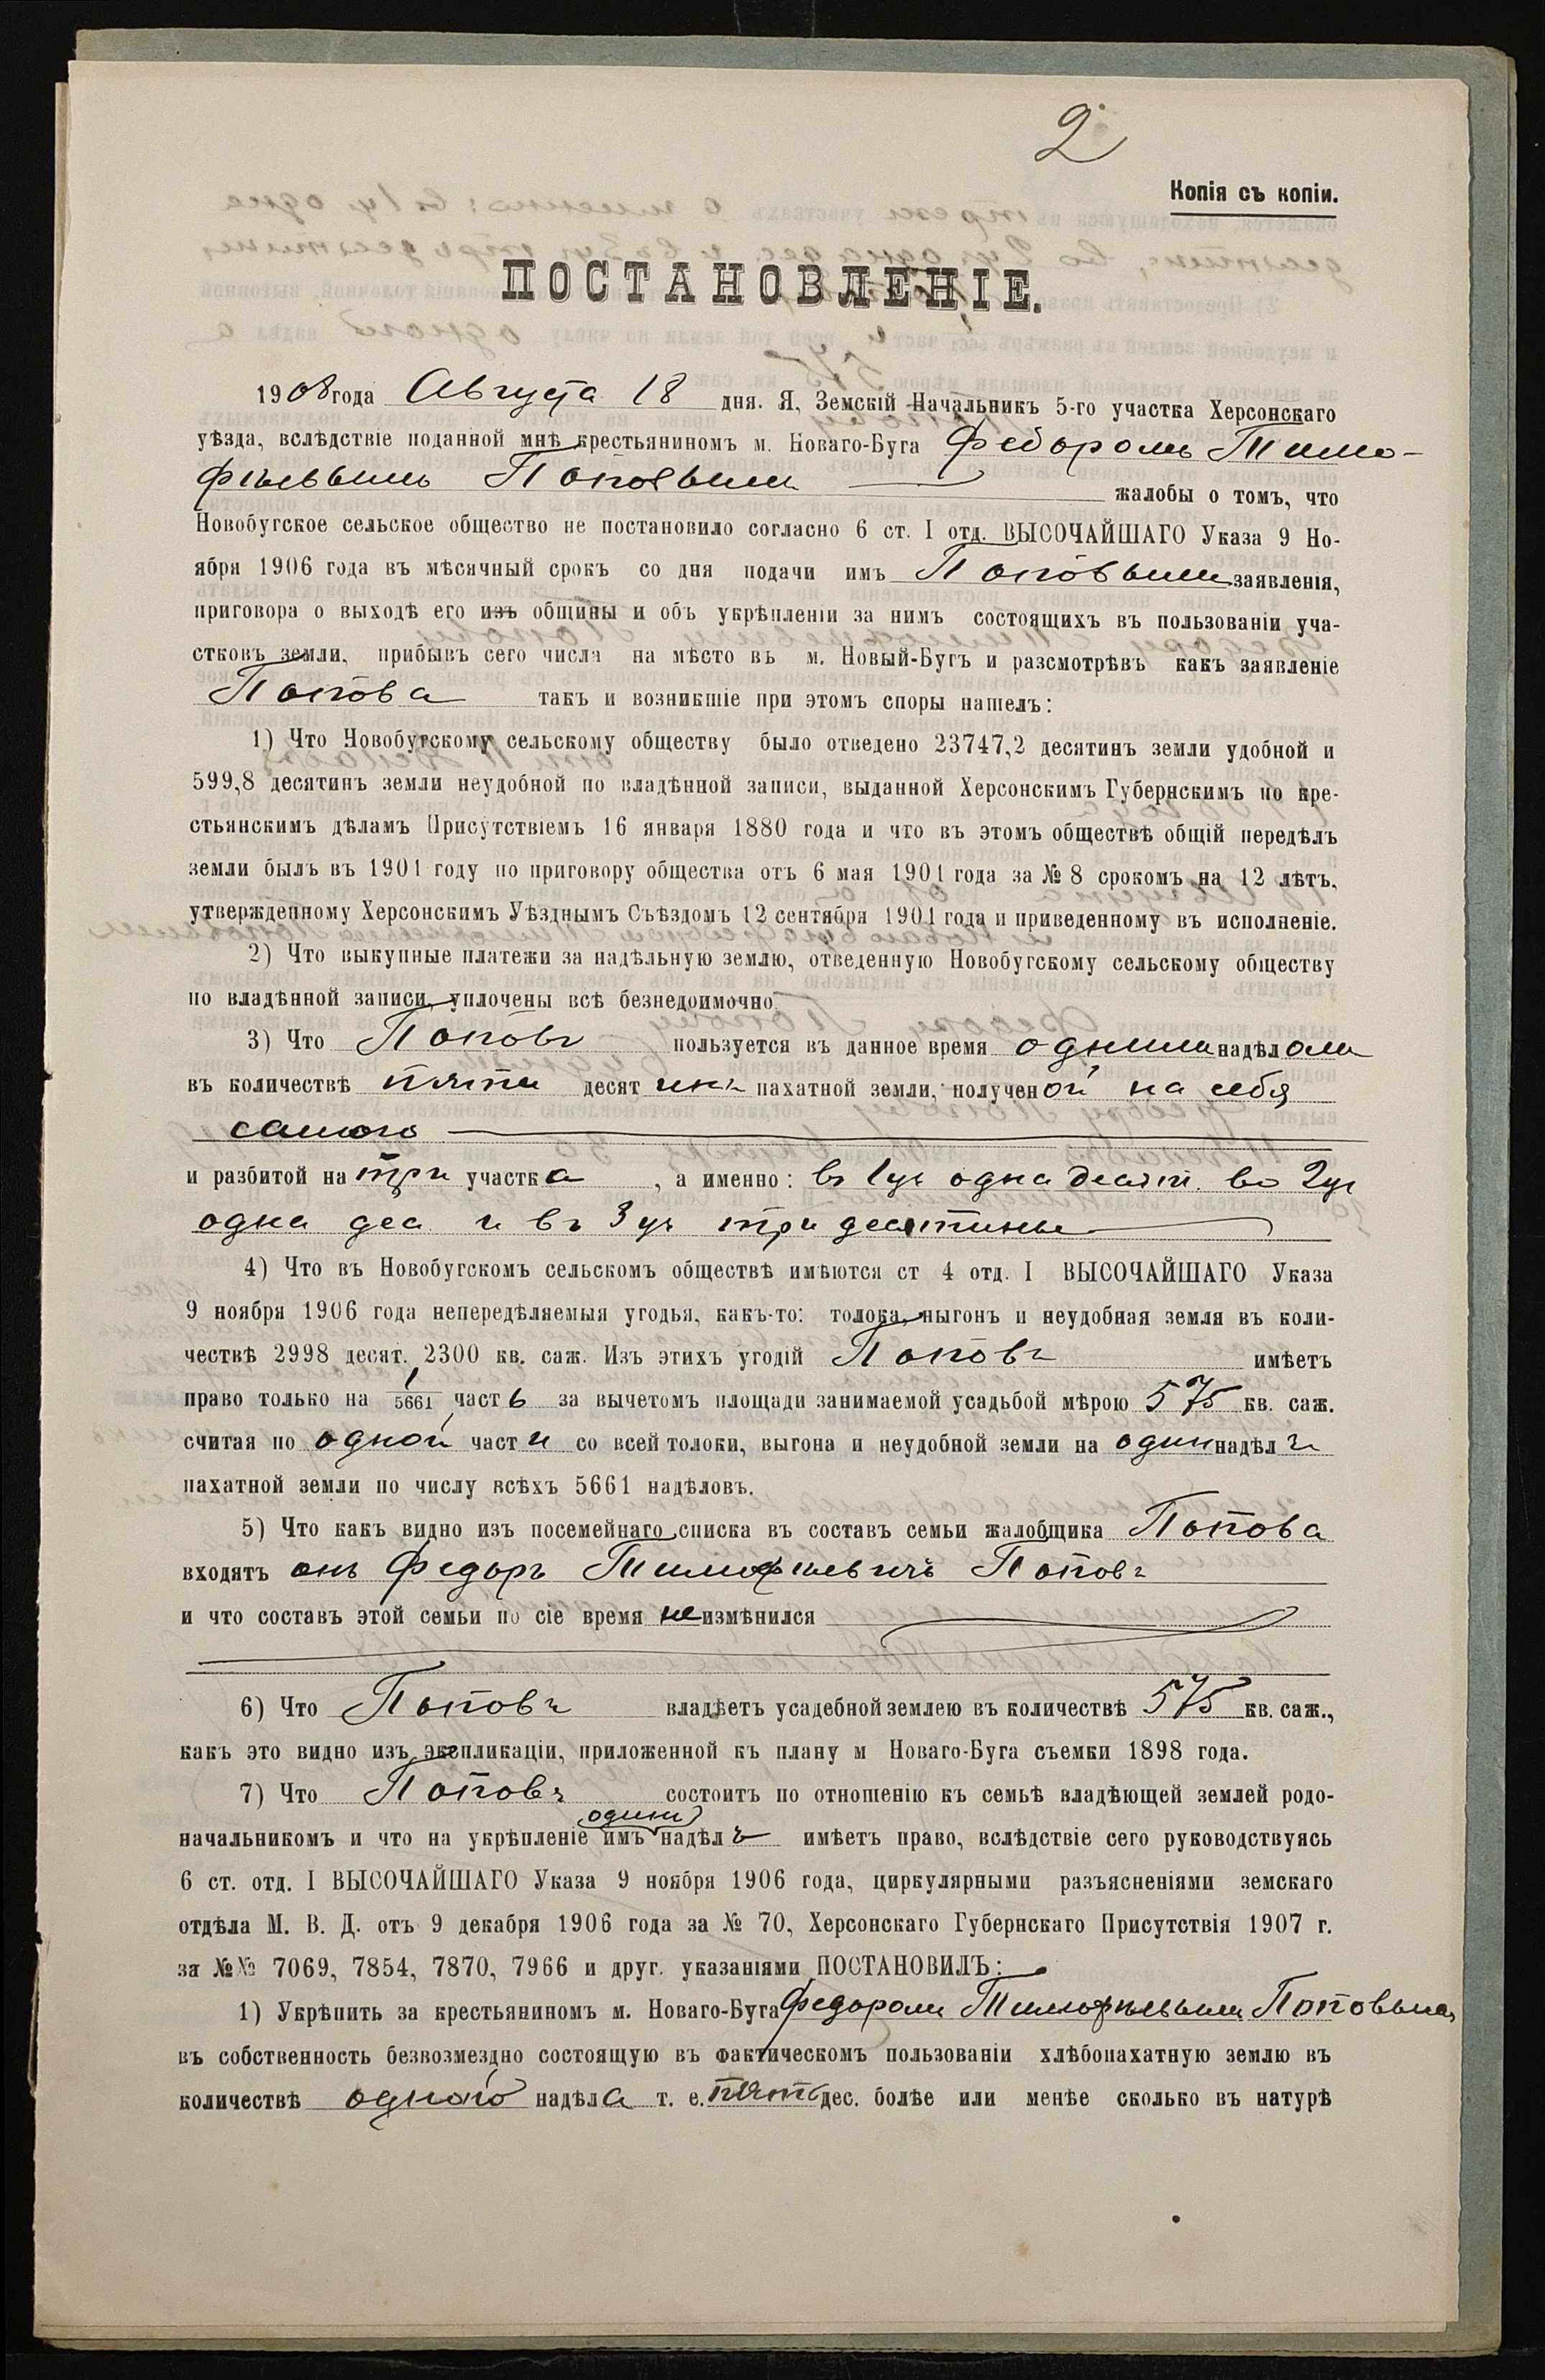 2
Копія съ копіи.
ПОСТАНОВЛЕНІЕ.
1908 года Августа 18 дня. Я, Земскій Начальникъ 5-го участка Херсонскаго
уѣзда, вслѣдствіе поданной мнѣ крестьяниномъ м. Новаго-Буга Федоромъ Тимо-
фѣевымъ Поповымъ жалобы о томъ, что
Новобугское сельское общество не постановило согласно 6 ст. I отд. ВЫСОЧАЙШАГО Указа 9 Но-
ября 1906 года въ мѣсячный срокъ со дня подачи имъ Поповымъ заявленія,
приговора о выходѣ его изъ общины и объ укрѣпленіи за нимъ состоящихъ въ пользованіи уча-
стковъ земли, прибывъ сего числа на мѣсто въ м. Новый-Бугъ и разсмотрѣвъ какъ заявленіе
Попова такъ и возникшіе при этомъ споры нашелъ:
1) Что Новобугскому сельскому обществу было отведено 23747,2 десятинъ земли удобной и
599,8 десятинъ земли неудобной по владѣнной записи, выданной Херсонскимъ Губернскимъ по кре-
стьянскимъ дѣламъ Присутствіемъ 16 января 1880 года и что въ этомъ обществѣ общій передѣлъ
земли былъ въ 1901 году по приговору общества отъ 6 мая 1901 года за № 8 срокомъ на 12 лѣтъ,
утвержденному Херсонскимъ Уѣзднымъ Съѣздомъ 12 сентября 1901 года и приведенному въ исполненіе.
2) Что выкупные платежи за надѣльную землю, отведенную Новобугскому сельскому обществу
по владѣнной записи, уплочены всѣ безнедоимочно.
3) Что Поповъ пользуется въ данное время однимъ надѣломъ
въ количествѣ пяти десятинъ пахатной земли, полученой на себя
самого
и разбитой на три участка, а именно: въ 1 уч одна десят. во 2 уч
одна дес. и въ 3 уч три десятины
4) Что въ Новобугскомъ сельскомъ обществѣ имѣются ст 4 отд. I ВЫСОЧАЙШАГО Указа
9 ноября 1906 года непередѣляемыя угодья, какъ-то: толока, выгонъ и неудобная земля въ коли-
чествѣ 2998 десят. 2300 кв. саж. Изъ этихъ угодій Поповъ имѣетъ
право только на 1/5661 часть за вычетомъ площади занимаемой усадьбой мѣрою 575 кв. саж.
считая по одной части со всей толоки, выгона и неудобной земли на одинъ надѣлъ
пахатной земли по числу всѣхъ 5661 надѣловъ.
5) Что какъ видно изъ посемейнаго списка въ составъ семьи жалобщика Попова
входятъ онъ Федоръ Тимофѣевичъ Поповъ
и что составъ этой семьи по сіе время не измѣнился
6) Что Поповъ владѣетъ усадебной землею въ количествѣ 575 кв. саж.,
какъ это видно изъ экспликаціи, приложенной къ плану м Новаго-Буга съемки 1898 года.
7) Что Поповъ состоитъ по отношенію къ семьѣ владѣющей землей родо-
одинъ
начальникомъ и что на укрѣпленіе имъ надѣлъ имѣетъ право, вслѣдствіе сего руководствуясь
6 ст. отд. I ВЫСОЧАЙШАГО Указа 9 ноября 1906 года, циркулярными разъясненіями земскаго
отдѣла М. В. Д. отъ 9 декабря 1906 года за № 70, Херсонскаго Губернскаго Присутствія 1907 г.
за №№ 7069, 7854, 7870, 7966 и друг. указаніями ПОСТАНОВИЛЪ:
1) Укрѣпить за крестьяниномъ м. Новаго-Буга Федоромъ Тимофѣевымъ Поповымъ
въ собственность безвозмездно состоящую въ фактическомъ пользованіи хлѣбопахатную землю въ
количествѣ одного надѣла т. е. пять дес. болѣе или менѣе сколько въ натурѣ